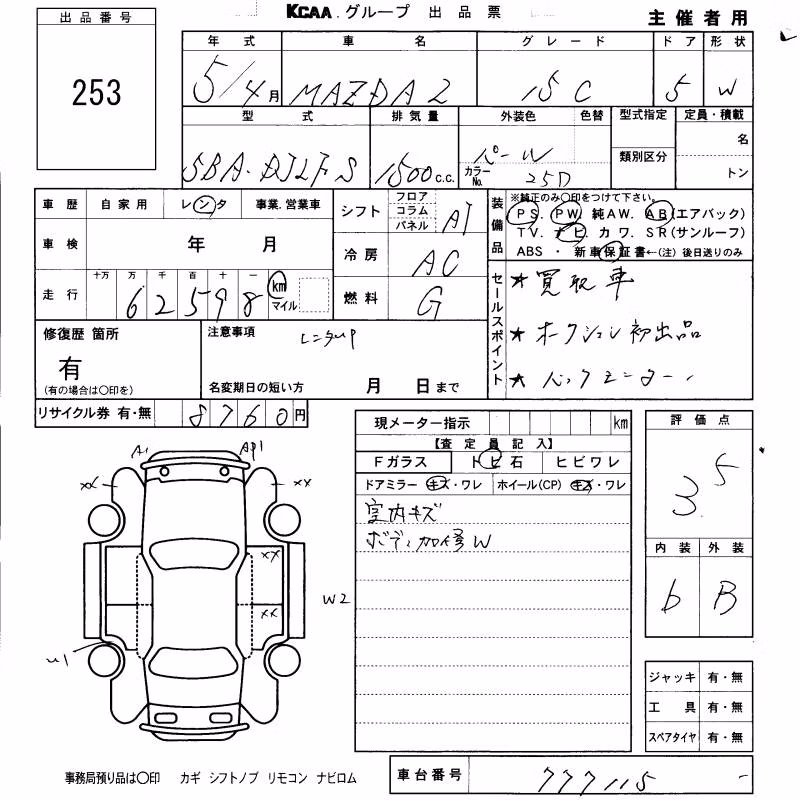 KCAA グループ 出品票
主催者用
出品番号
253
年式 車名 グレード ドア 形状
5/4月 MAZDA2 15C 5 W
型式 排気量 外装色 色替 型式指定 定員・積載
名
類別区分
トン
5BA-DJLFS 1500c.c. パール カラーNo. 25D
車歴 自家用 レンタ 事業.営業車
車検 年 月
走行 十万 万 千 百 十 一
62598 km マイル
シフト フロア コラム パネル AT
冷房 AC
燃料 G
装備品
※純正のみ〇印をつけて下さい。
PS. PW. 純AW. AB(エアバック)
TV. ナビ. カワ. SR(サンルーフ)
ABS ・ 新車保証書←(注)後日送りのみ
セールスポイント
★ 買取車
★ オークション初出品
修復歴 箇所
有
(有の場合は〇印を)
注意事項
レンタup
名変期日の短い方 月 日まで
リサイクル券 有・無 8760円
現メーター指示 km
【査定員記入】
Fガラス トビ石 ヒビワレ
ドアミラー キズ・ワレ ホイール(CP) キズ・ワレ
室内キズ
ボディ加修W
評価点
3.5
内装 外装
b B
A1 AP1
xx xx
xx
xx
W2
U1
ジャッキ 有・無
工具 有・無
スペアタイヤ 有・無
事務局預り品は〇印 カギ シフトノブ リモコン ナビロム
車台番号 777115